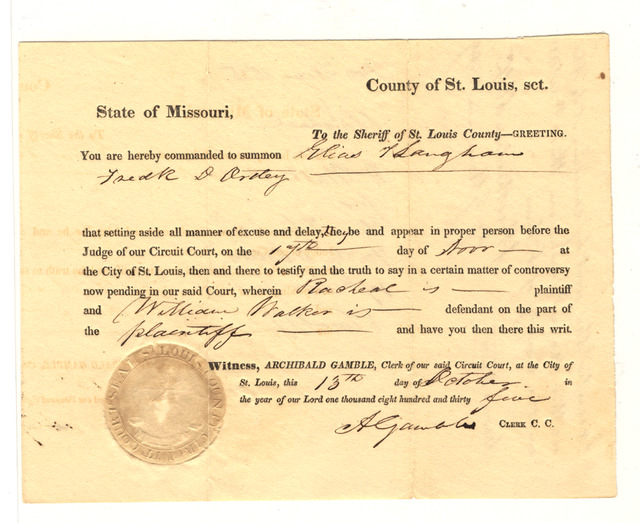 County of St. Louis, sct.
State of Missouri,
To the Sheriff of St. Louis County—GREETING.
You are hereby commanded to summon Elias T Langham
Fredk D
that setting aside all manner of excuse and delay, they be and appear in proper person before the
Judge of our Circuit Court, on the 17th day of Novr at
the City of St. Louis, then and there to testify and the truth to say in a certain matter of controversy
now pending in our said Court, wherein Racheal is plaintiff
and William Walker is defendant on the part of
the plaintiff and have you then there this writ.
Witness, ARCHIBALD GAMBLE, Clerk of our said Circuit Court, at the City of
St. Louis, this 13th day of October in
the year of our Lord one thousand eight hundred and thirty five
A Gamble CLERK C. C.